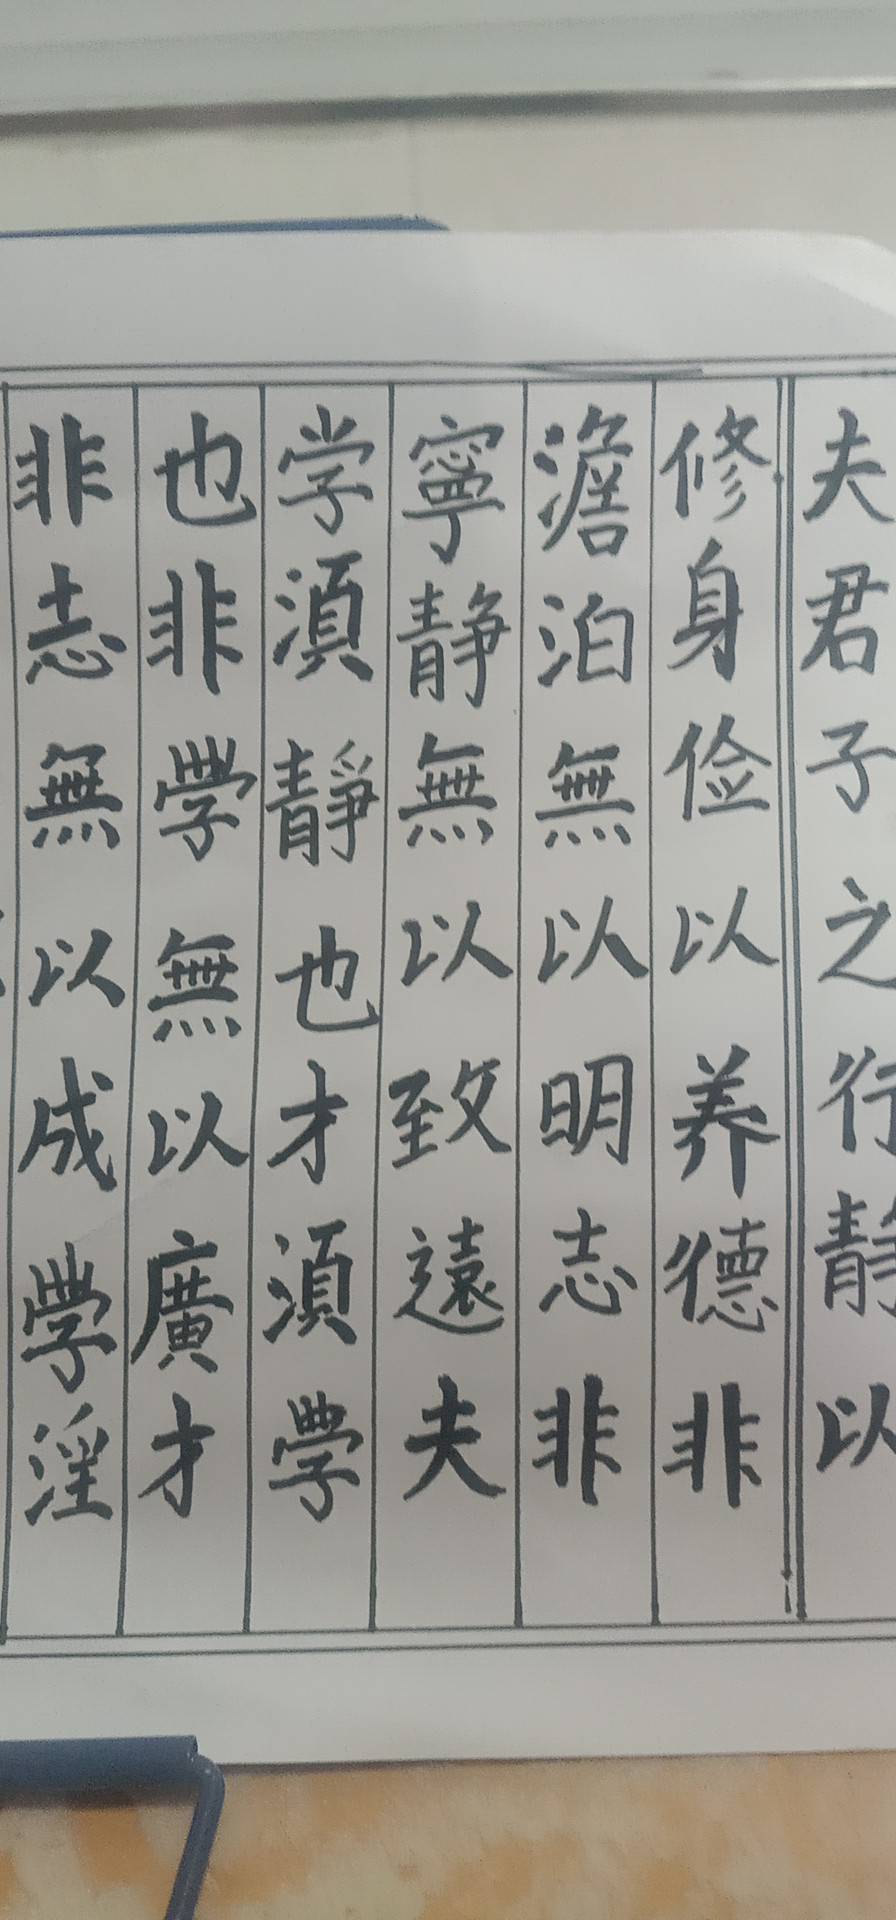 夫君子之行静以
修身俭以养德非
澹泊無以明志非
寧静無以致遠夫
学須靜也才須學
也非學無以廣才
非志無以成學淫